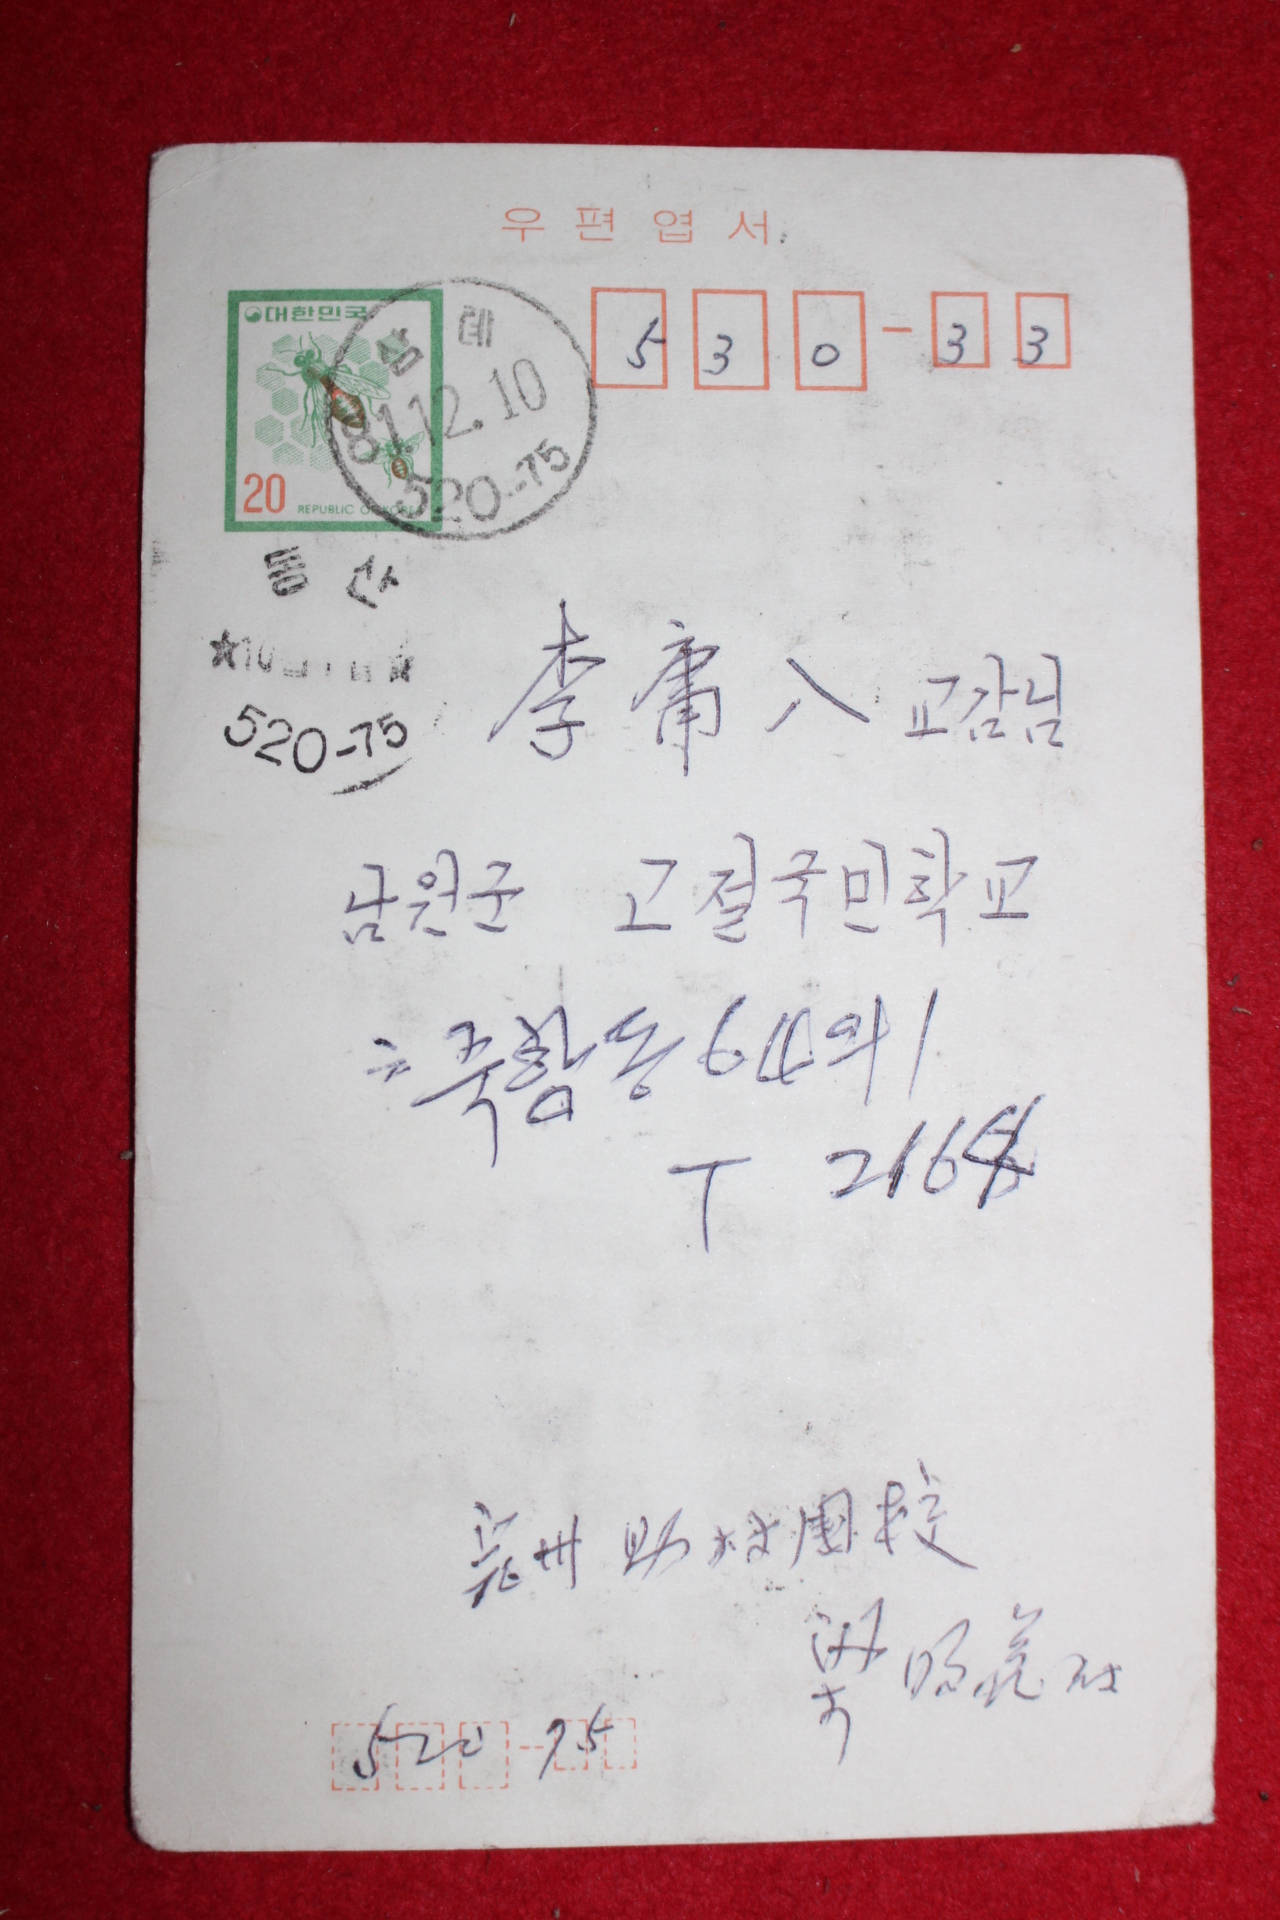 우편엽서
대한민국
20 REPUBLIC OF KOREA
삼례
81.12.10
520-75
530-33
520-75
李庸八 교감님
남원군 고절국민학교
죽항동 64의1
T
校
梁 明
520-75